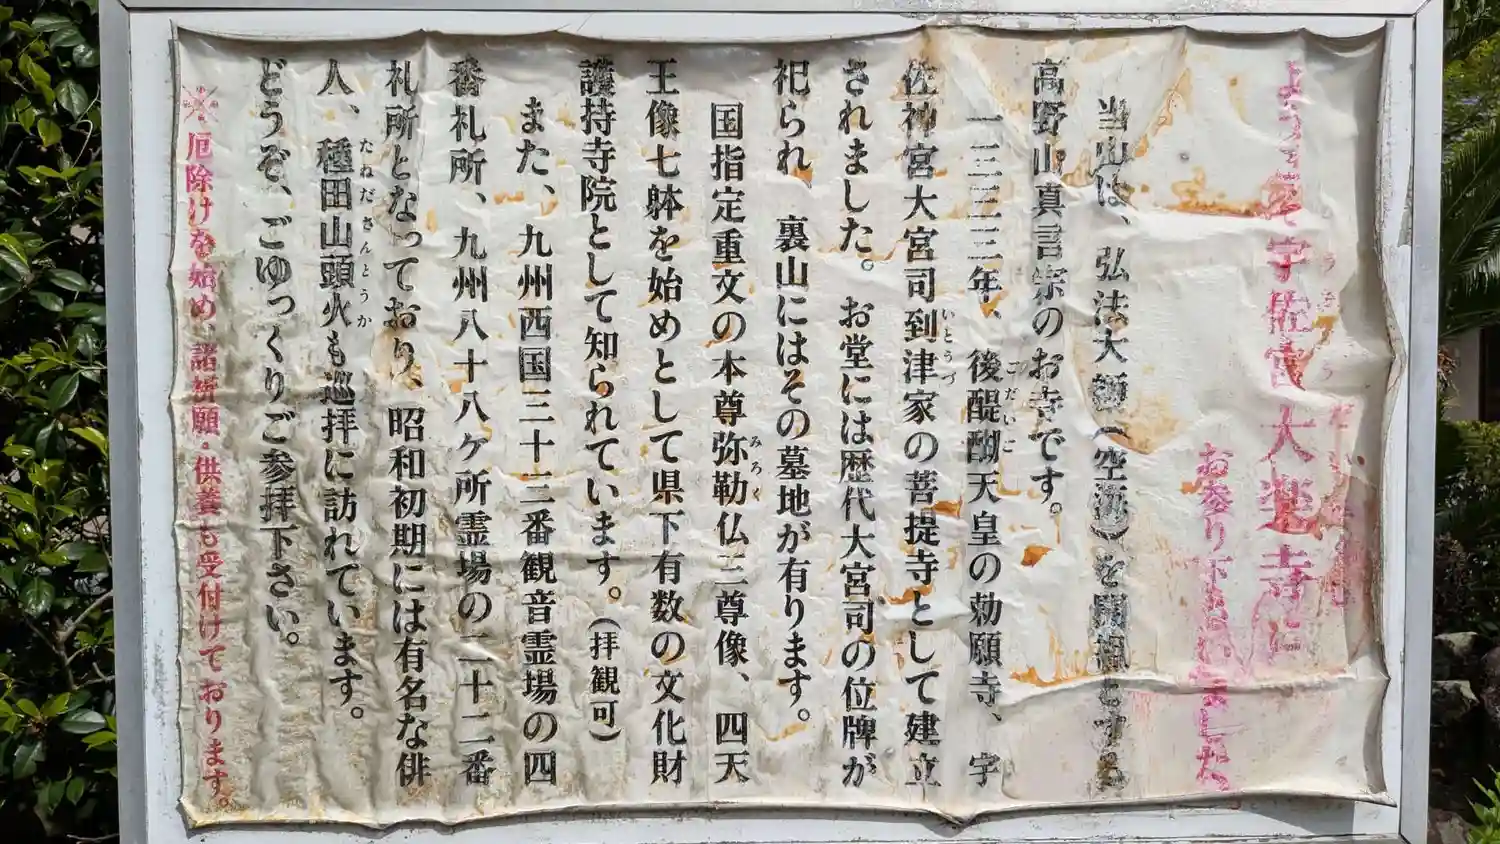 ようこそ宇佐宮大楽寺に
お参り下さいました
当山は、弘法大師（空海）を開祖とする
高野山真言宗のお寺です。
一三三三年、後醍醐天皇の勅願寺、宇
佐神宮大宮司到津家の菩提寺として建立
されました。お堂には歴代大宮司の位牌が
祀られ、裏山にはその墓地が有ります。
国指定重文の本尊弥勒仏三尊像、四天
王像七躰を始めとして県下有数の文化財
護持寺院として知られています。（拝観可）
また、九州西国三十三番観音霊場の四
番札所、九州八十八ケ所霊場の二十二番
札所となっており、昭和初期には有名な俳
人、種田山頭火も巡拝に訪れています。
どうぞ、ごゆっくりご参拝下さい。
※厄除けを始め、諸祈願・供養も受付けております。